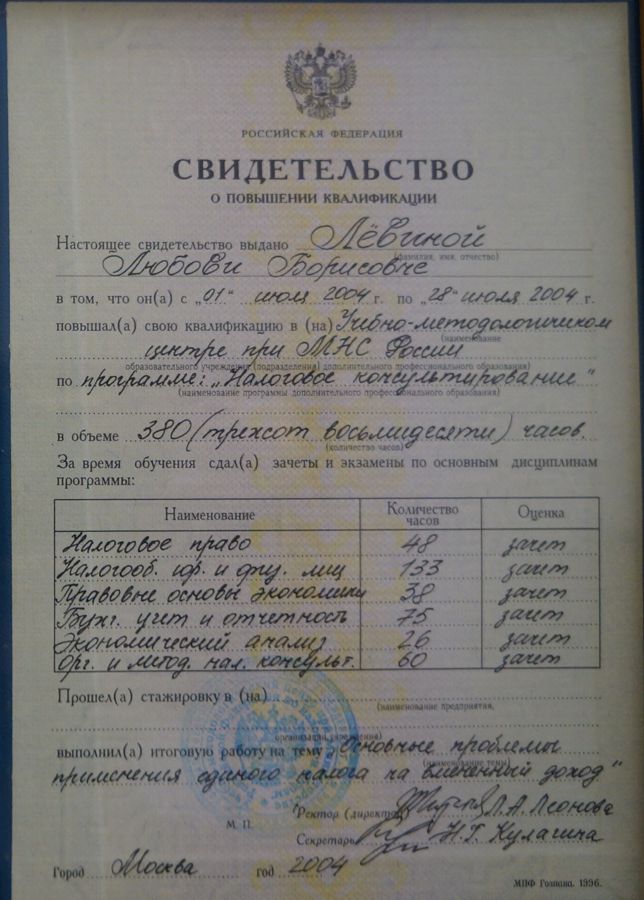 РОССИЙСКАЯ ФЕДЕРАЦИЯ
СВИДЕТЕЛЬСТВО
О ПОВЫШЕНИИ КВАЛИФИКАЦИИ
Настоящее свидетельство выдано Лёвиной
(фамилия, имя, отчество)
Любови Борисовне
в том, что он(а) с „01" июля 2004 г. по „28" июля 2004 г.
повышал(а) свою квалификацию в (на) Учебно-методологическом
(наименование
центре при МНС России
образовательного учреждения (подразделения) дополнительного профессионального образования)
по программе: „Налоговое консультирование"
(наименование программы дополнительного профессионального образования)
в объеме 380 (трехсот восьмидесяти) часов.
(количество часов)
За время обучения сдал(а) зачеты и экзамены по основным дисциплинам
программы:
Наименование Количество часов Оценка
Налоговое право 48 зачет
Налогооб. юр. и физ. лиц 133 зачет
Правовые основы экономики 38 зачет
Бухг. учет и отчетность 75 зачет
Экономический анализ 26 зачет
Орг. и метод. нал. консульт. 60 зачет
Прошел(а) стажировку в (на)
(наименование предприятия,
организации, учреждения)
выполнил(а) итоговую работу на тему „Основные проблемы
(наименование темы)
применения единого налога на вмененный доход"
Ректор (директор) Л.А. Леонова
М. П.
Секретарь Н.Г. Кулагина
Город Москва год 2004
МПФ Гознака. 1996.